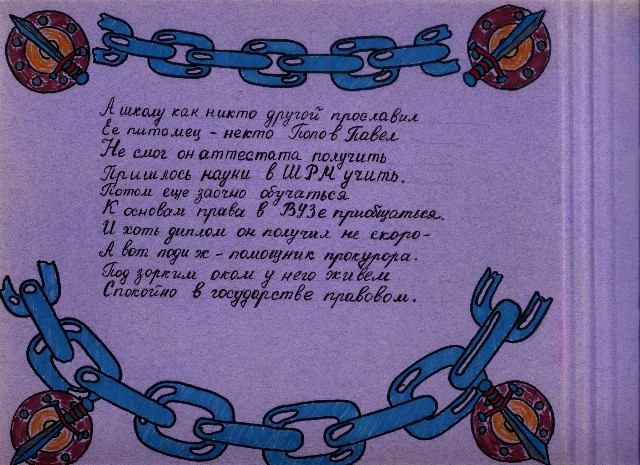 А школу как никто другой прославил
Ее питомец - некто Попов Павел
Не смог он аттестата получить
Пришлось науки в ШРМ учить.
Потом еще заочно обучаться
К основам права в ВУЗе приобщаться.
И хоть диплом он получил не скоро-
А вот поди ж - помощник прокурора.
Под зорким оком у него живем
Спокойно в государстве правовом.